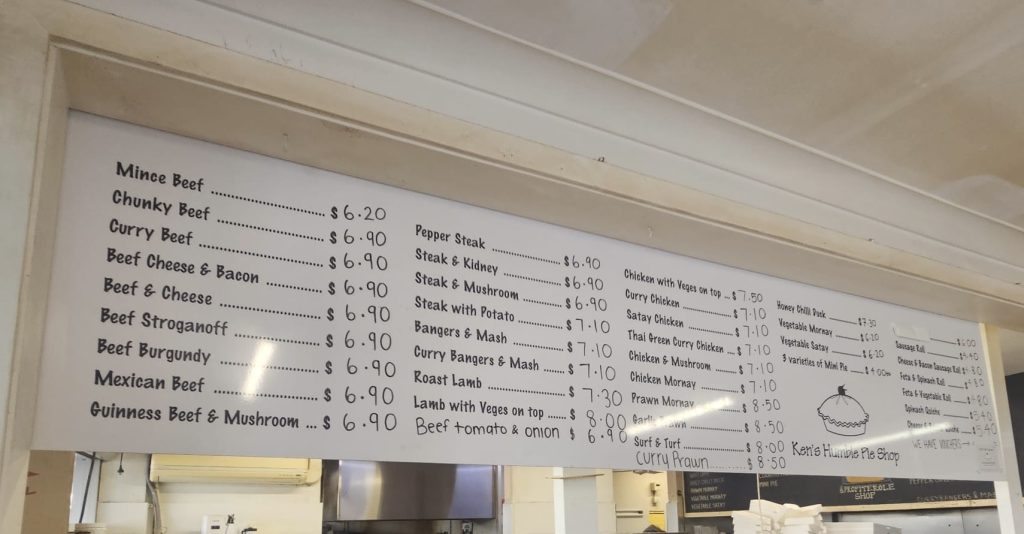 Mince Beef ........ $ 6.20
Chunky Beef ........ $ 6.90
Curry Beef ........ $ 6.90
Beef Cheese & Bacon ........ $ 6.90
Beef & Cheese ........ $ 6.90
Beef Stroganoff ........ $ 6.90
Beef Burgundy ........ $ 6.90
Mexican Beef ........ $ 6.90
Guinness Beef & Mushroom ... $ 6.90
Pepper Steak ........ $ 6.90
Steak & Kidney ........ $ 6.90
Steak & Mushroom ........ $ 6.90
Steak with Potato ........ $ 7.10
Bangers & Mash ........ $ 7.10
Curry Bangers & Mash ... $ 7.10
Roast Lamb ........ $ 7.30
Lamb with Veges on top .... $ 8.00
Beef tomato & onion $ 6.90
Chicken with Veges on top ... $ 7.50
Curry Chicken ........ $ 7.10
Satay Chicken ........ $ 7.10
Thai Green Curry Chicken ... $ 7.10
Chicken & Mushroom ........ $ 7.10
Chicken Mornay ........ $ 7.10
Prawn Mornay ........ $ 8.50
Garlic Prawn ........ $ 8.50
Surf & Turf ........ $ 8.00
Curry Prawn ........ $ 8.50
Honey Chilli Duck ...... $ 7.30
Vegetable Mornay ...... $ 6.20
Vegetable Satay ...... $ 6.20
3 varieties of Mini Pie ... $ 4.00
Ken's Humble Pie Shop
6.00
Sausage Roll
Cheese & Bacon Sausage Roll
Feta & Spinach Roll
Feta & Vegetable Roll
Spinach Quiche
Quiche
WE HAVE VOUCHERS
PROFITEROLE
SHOP